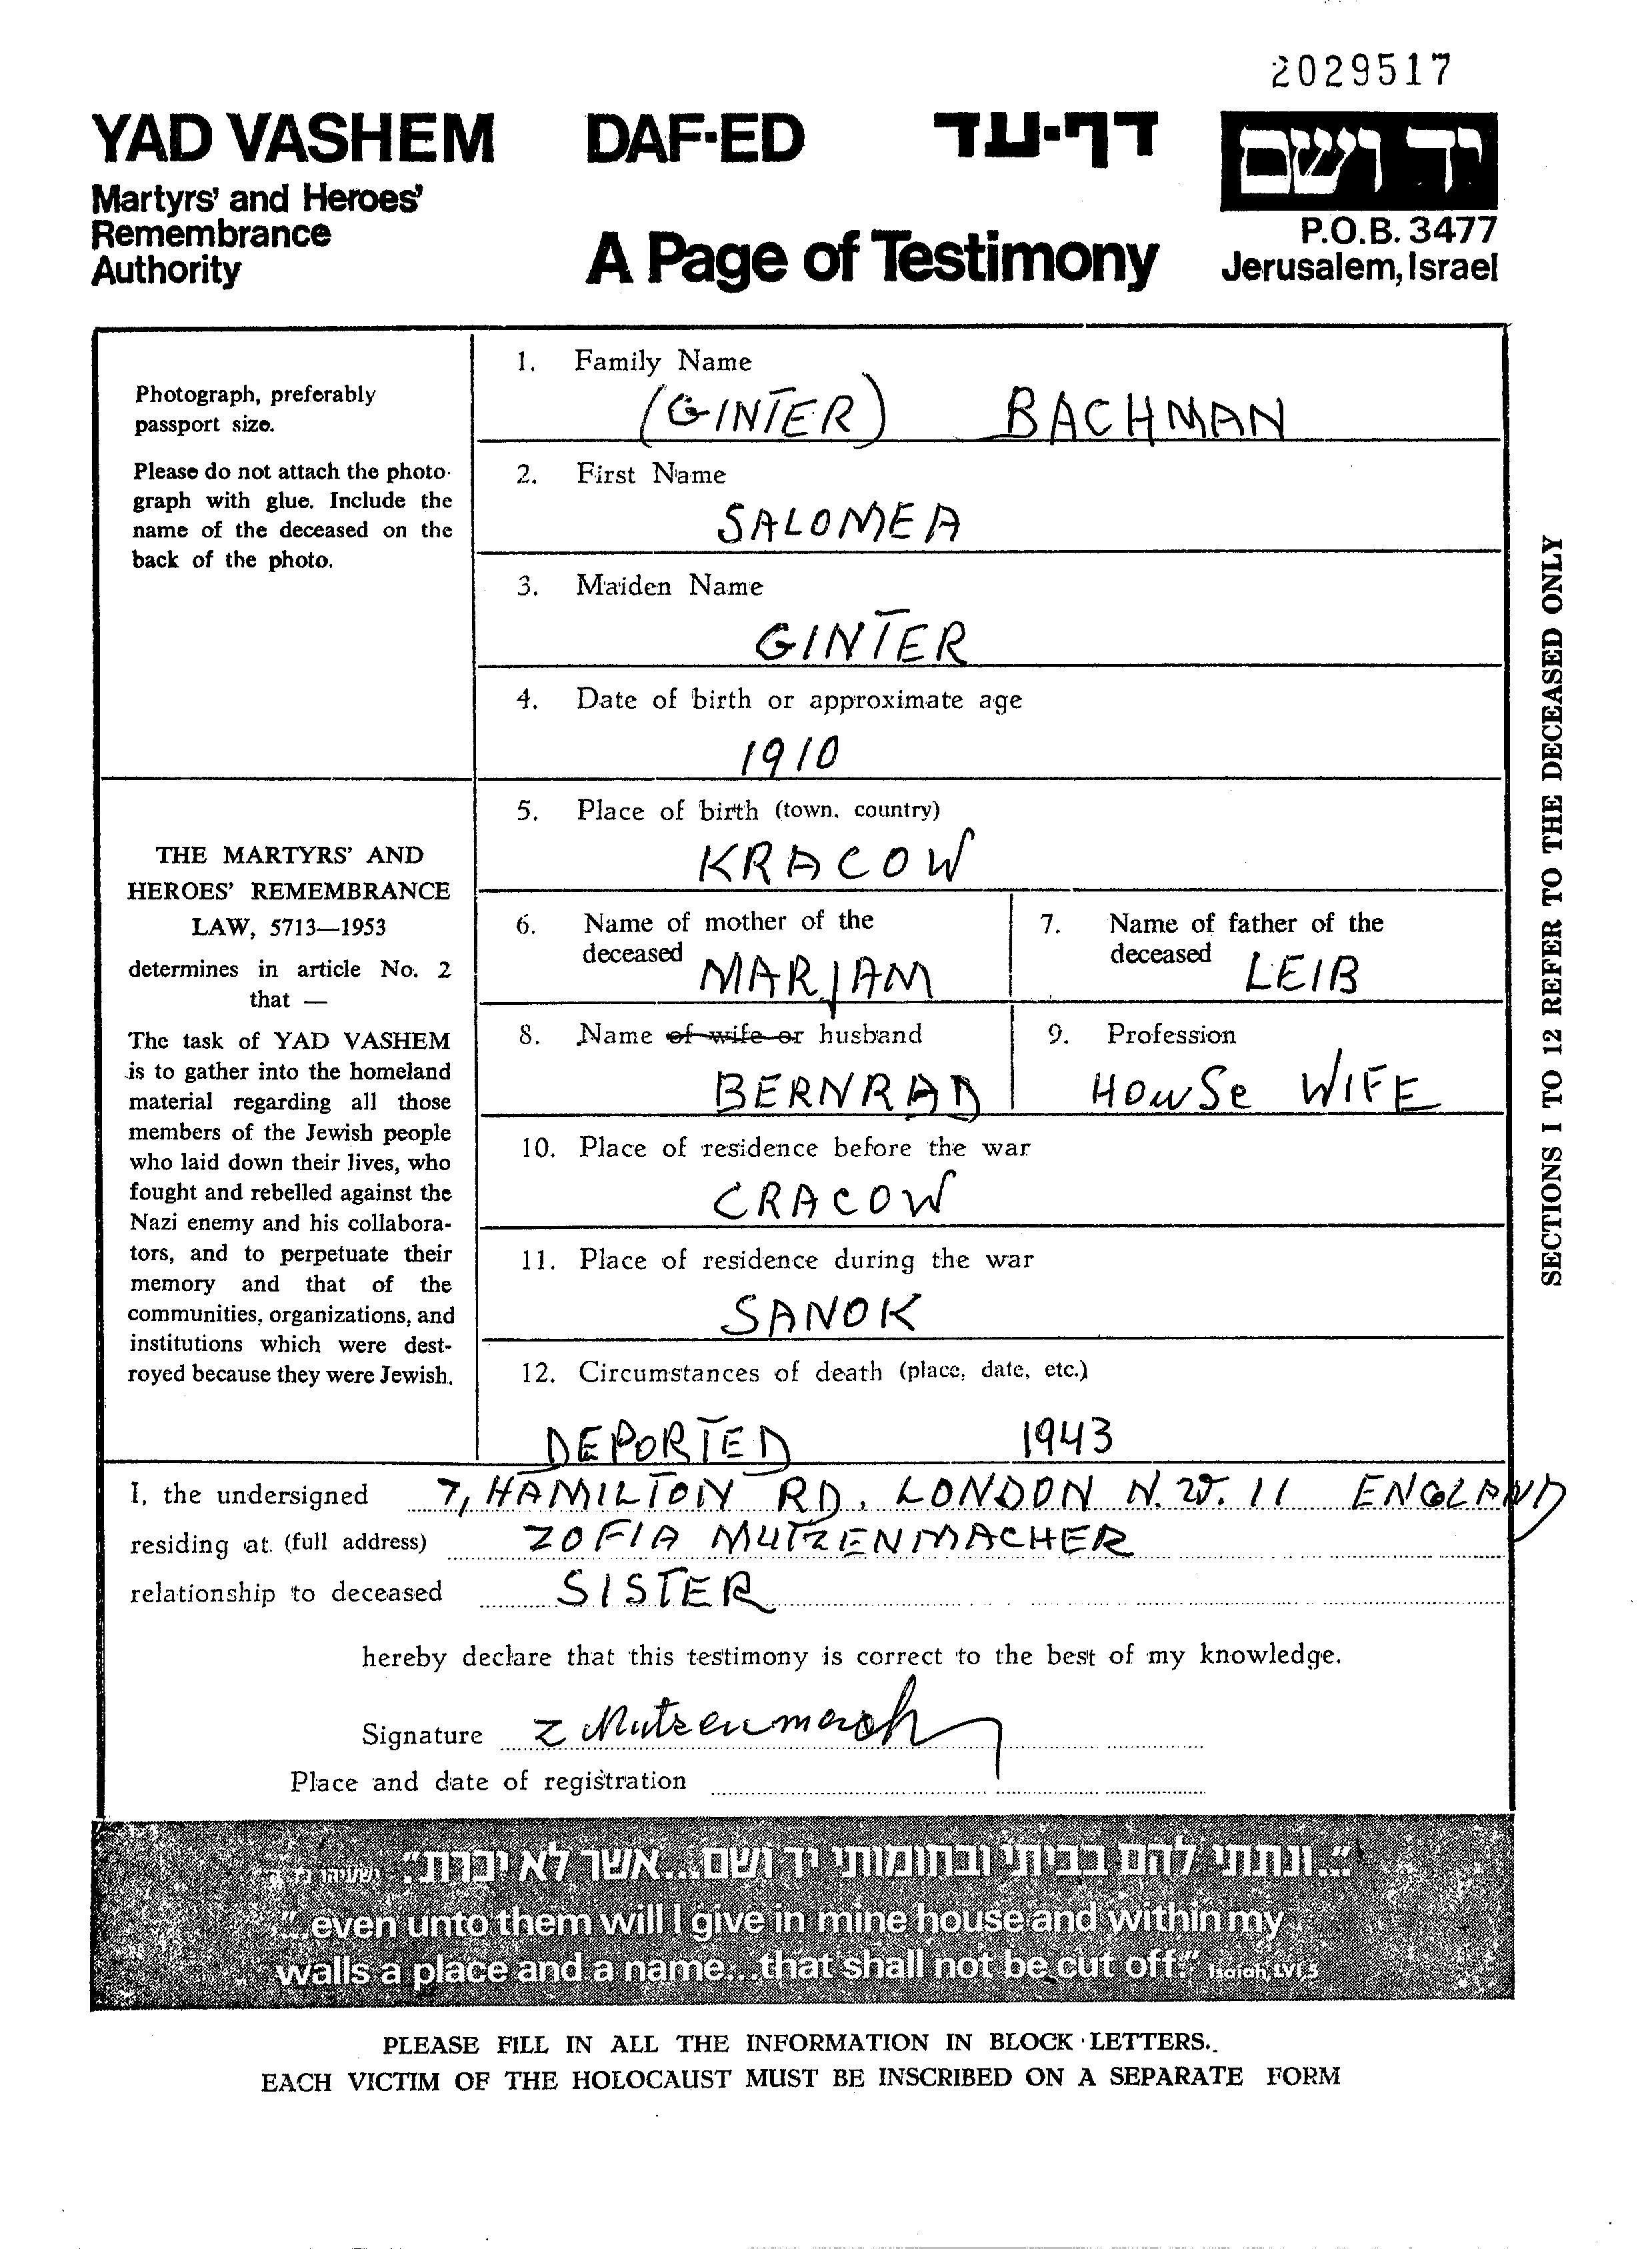 2029517
YAD VASHEM DAF-ED דף-עד יד ושם
Martyrs' and Heroes'
Remembrance
Authority
A Page of Testimony
P.O.B. 3477
Jerusalem, Israel
Photograph, preferably
passport size.
Please do not attach the photo-
graph with glue. Include the
name of the deceased on the
back of the photo.
THE MARTYRS' AND
HEROES' REMEMBRANCE
LAW, 5713—1953
determines in article No. 2
that —
The task of YAD VASHEM
is to gather into the homeland
material regarding all those
members of the Jewish people
who laid down their lives, who
fought and rebelled against the
Nazi enemy and his collabora-
tors, and to perpetuate their
memory and that of the
communities, organizations, and
institutions which were dest-
royed because they were Jewish.
1. Family Name
(GINTER) BACHMAN
2. First Name
SALOMEA
3. Maiden Name
GINTER
4. Date of birth or approximate age
1910
5. Place of birth (town, country)
KRACOW
6. Name of mother of the
deceased MARJAM
7. Name of father of the
deceased LEIB
8. Name of wife or husband
BERNRAD
9. Profession
HOWSe WIFE
10. Place of residence before the war
CRACOW
11. Place of residence during the war
SANOK
12. Circumstances of death (place, date, etc.)
DEPORTED 1943
SECTIONS 1 TO 12 REFER TO THE DECEASED ONLY
I, the undersigned 7, HAMILTON RD. LONDON N.W. 11 ENGLAND
residing at (full address) ZOFIA MUTZENMACHER
relationship to deceased SISTER
hereby declare that this testimony is correct to the best of my knowledge.
Signature Z Mutzenmach
Place and date of registration
"...ונתתי להם בביתי ובחומותי יד ושם...אשר לא יכרת". ישעיהו נ"ו, ה'
"...even unto them will I give in mine house and within my
walls a place and a name...that shall not be cut off." Isaiah, LVI, 5
PLEASE FILL IN ALL THE INFORMATION IN BLOCK LETTERS.
EACH VICTIM OF THE HOLOCAUST MUST BE INSCRIBED ON A SEPARATE FORM